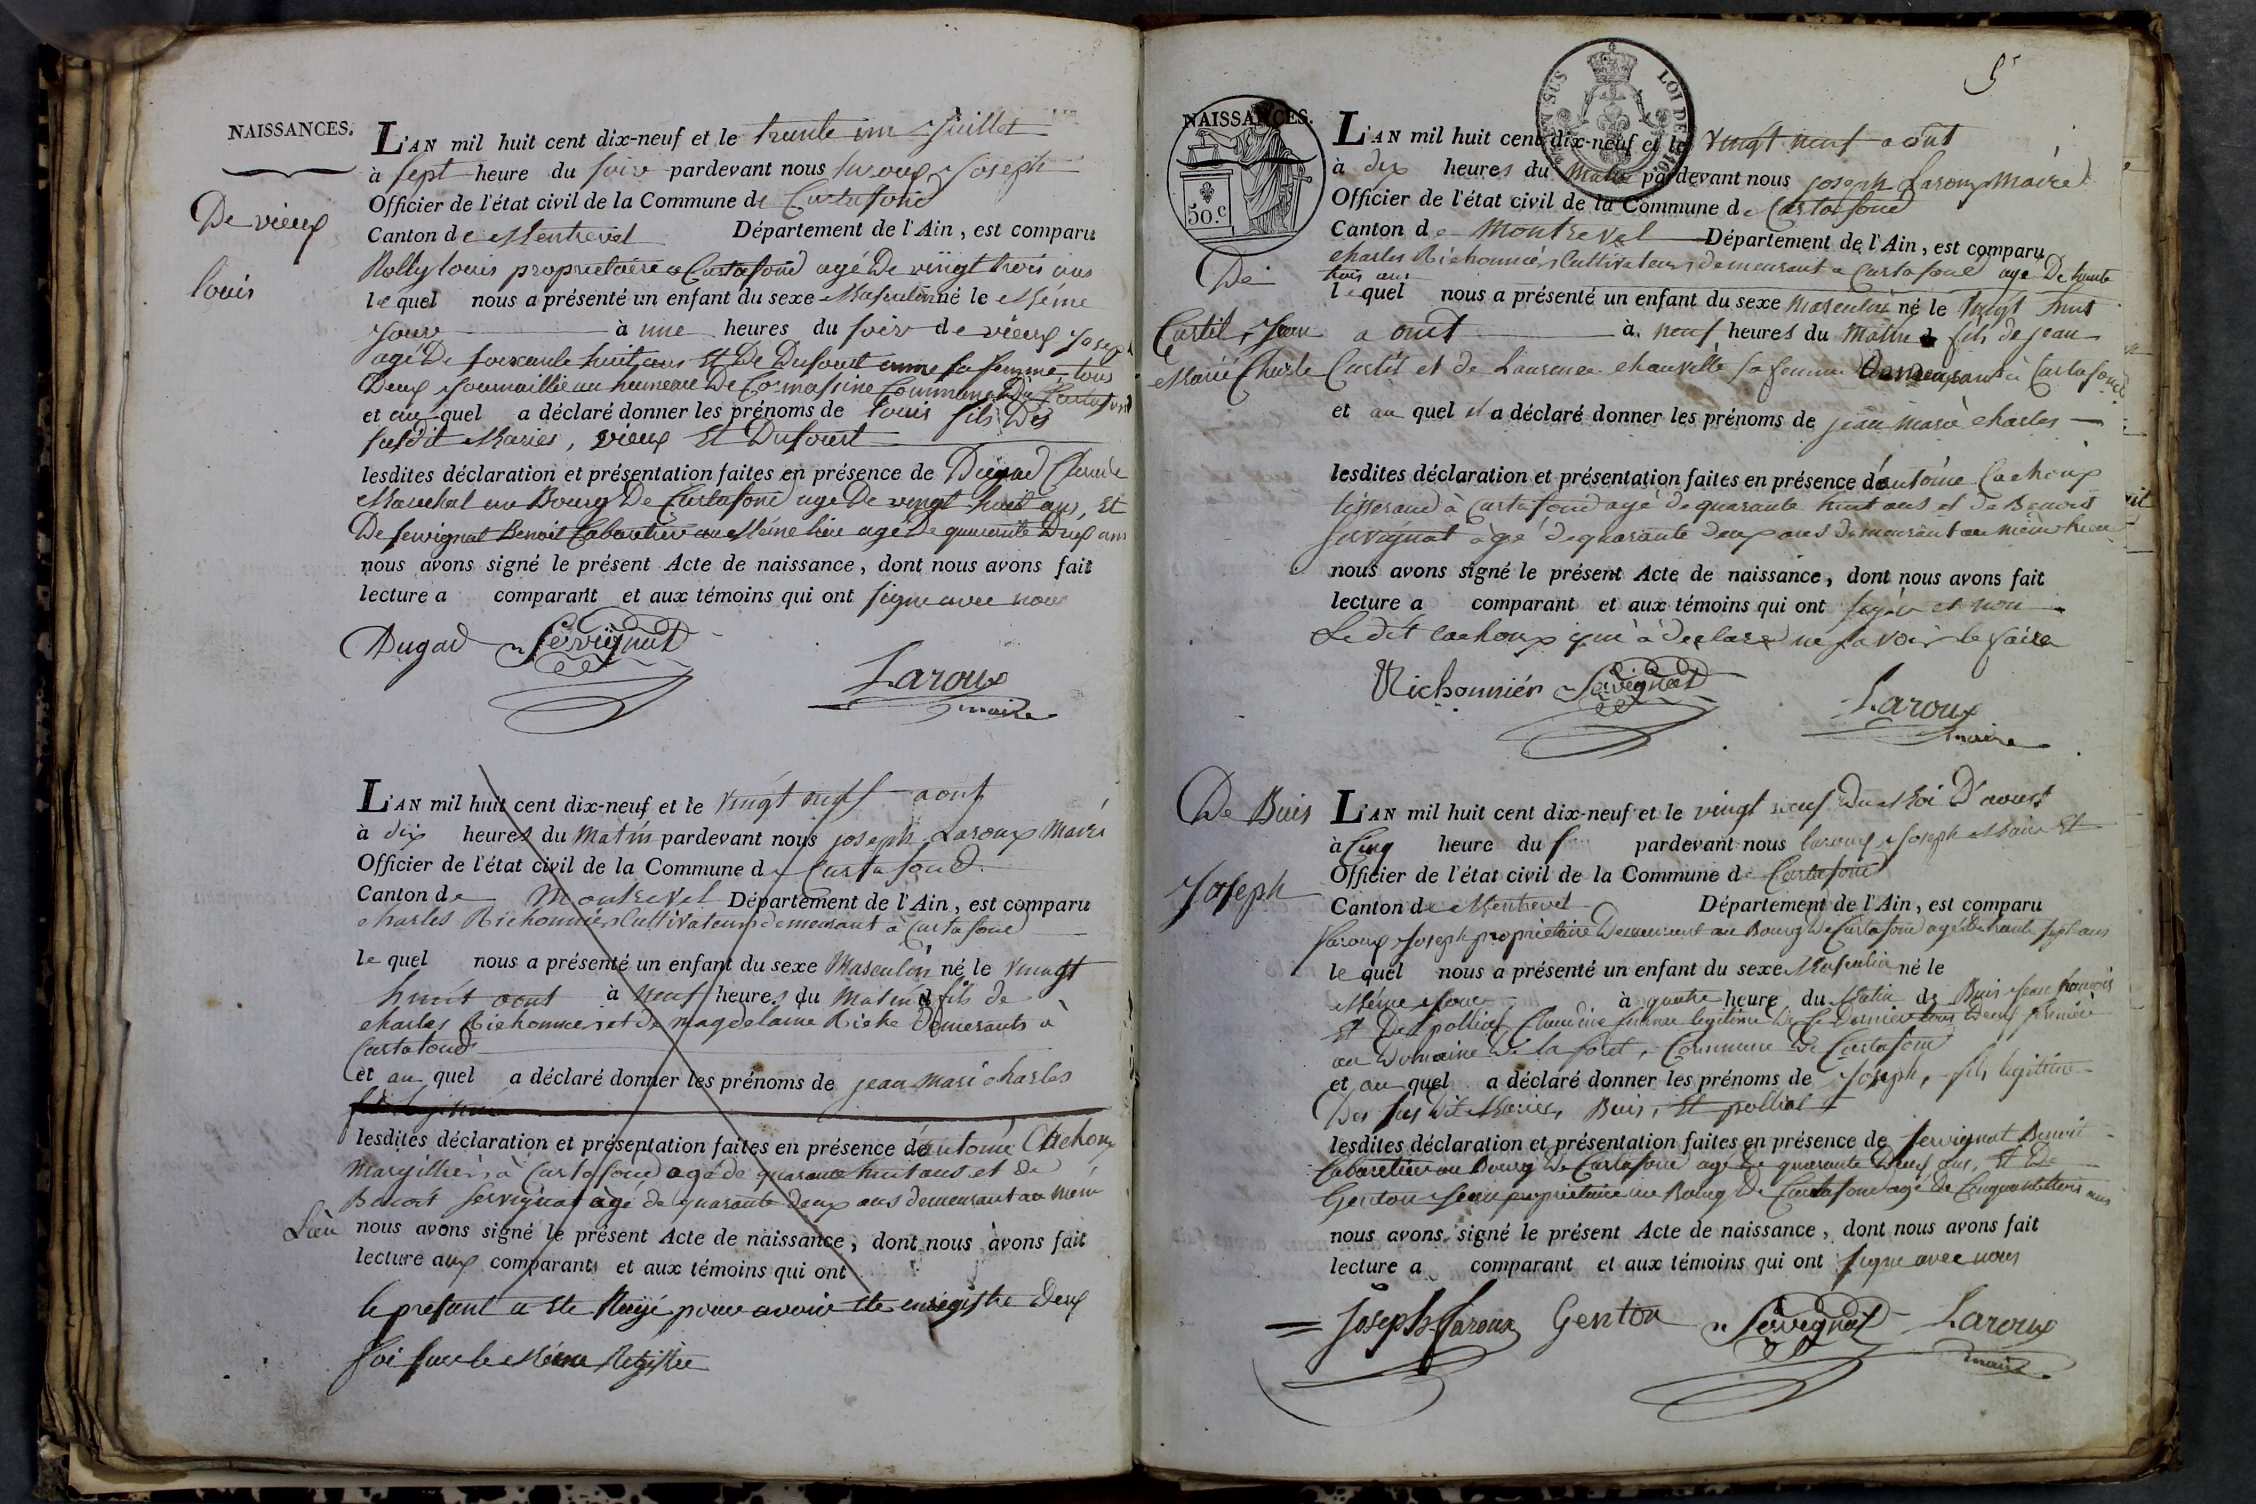 NAISSANCES.
De vieux
louis
L'AN mil huit cent dix-neuf et le trente un Juillet
à sept heure du soir pardevant nous Laroux Joseph
Officier de l'état civil de la Commune de Curtafond
Canton de Montrevel Département de l'Ain, est comparu
louis propriétaire a Curtafond agé De vingt trois ans
le quel nous a présenté un enfant du sexe Masculin né le Même
Jour à une heures du soir de vieux Joseph
agé De soixante huit ans Et De Dufourt sa femme tous
Deux Journaillié au hameau De Cormassine Commune De Curtafond
et au quel a déclaré donner les prénoms de louis fils Des
susdit Mariés, vieux Et Dufourt
lesdites déclaration et présentation faites en présence de Dugad Claude
Marechal au Bourg De Curtafond age De vingt huit ans, Et
De servignat Benoit Cabaretier au Même lieu agé De quarante Deux ans
nous avons signé le présent Acte de naissance, dont nous avons fait
lecture a comparant et aux témoins qui ont signe avec nous
Dugad Servignat
Laroux
maire
L'AN mil huit cent dix-neuf et le vingt neuf aout
à dix heures du matin pardevant nous joseph Laroux Maire
Officier de l'état civil de la Commune de Curtafond
Canton de Montrevel Département de l'Ain, est comparu
charles Richonnier Cultivateur demeurant à Curtafond
le quel nous a présenté un enfant du sexe Masculin né le vingt
huit aout à neuf heures du matin fils de
charles Richonnier et de magdelaine demeurants à
Curtafond
et au quel a déclaré donner les prénoms de jean mari charles
lesdites déclaration et présentation faites en présence de antoine Cachoux
Margillier à Curtafond agé de quarante huit ans et de
Benoit servignat àgé de quarante deux ans demeurant au mem
Lieu nous avons signé le présent Acte de naissance, dont nous avons fait
lecture aux comparants et aux témoins qui ont
le present a ete Rayé pour avoir ete enregistre Deux
foi sur le Même Registre
5
50.c
LOI DE
NAISSANCES.
De
Curtil Jean
Marie Charle
L'AN mil huit cent dix-neuf et le vingt neuf aout
à dix heures du matin pardevant nous joseph Laroux Maire
Officier de l'état civil de la Commune de Curtafond
Canton de Montrevel Département de l'Ain, est comparu
charles Richonnier Cultivateur demeurant a Curtafond age De trente
trois ans
le quel nous a présenté un enfant du sexe masculin né le vingt huit
aout à neuf heures du matin fils de jean
Curtil et de Laurence sa femme Demeurant à Curtafond
et au quel il a déclaré donner les prénoms de jean marie charles
lesdites déclaration et présentation faites en présence de antoine Cachoux
tisserand à Curtafond agé de quarante huit ans et de Benoit
servignat àgé de quarante deux ans demeurant au même lieu
nous avons signé le présent Acte de naissance, dont nous avons fait
lecture a comparant et aux témoins qui ont signé et non
Le dit cachoux qui à déclaré ne savoir le faire
Richonnier Servignat
Laroux
maire
De Buis
Joseph
L'AN mil huit cent dix-neuf et le vingt neuf du Moi D'aoust
à Cinq heure du pardevant nous laroux Joseph Maire Et
Officier de l'état civil de la Commune de Curtafond
Canton de Montrevel Département de l'Ain, est comparu
laroux Joseph propriétaire Demeurant au Bourg De Curtafond agé De trente sept ans
le quel nous a présenté un enfant du sexe Masculin né le
Même Jour à quatre heure du Matin de Buis Jean
Et De pollial Claudine femme legitime De Ce Dernier tous Deux fermier
au Domaine De la foret, Commune De Curtafond
et au quel a déclaré donner les prénoms de Joseph, fils legitime
Des sus dit Mariés, Buis, Et pollial
lesdites déclaration et présentation faites en présence de servignat Benoit
Cabaretier au Bourg De Curtafond agé De quarante Deux ans, Et De
Genton Jean propriétaire au Bourg De Curtafond agé De Cinquante trois ans
nous avons signé le présent Acte de naissance, dont nous avons fait
lecture a comparant et aux témoins qui ont signe avec nous
Joseph Laroux Genton Servignat Laroux
maire